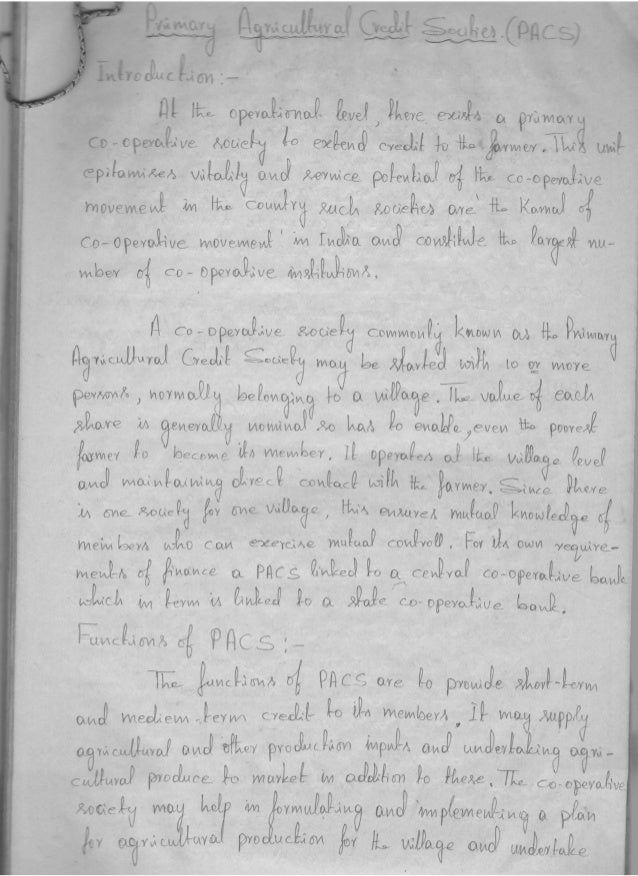 Primary Agricultural Credit Socities.(PACS)
Introduction :-
At the operational level, there exists a primary
co-operative society to extend credit to the farmer. This unit
epitamises vitality and service potential of the co-operative
movement in the country such societies are 'the Kamal of
co-operative movement' in India and constitute the largest nu-
mber of co-operative institutions.
A co-operative society commonly known as the Primary
Agricultural Credit Society may be started with 10 or more
persons, normally belonging to a village. The value of each
share is generally nominal so has to enable, even the poorest
farmer to become its member. It operates at the village level
and maintaining direct contact with the farmer. Since there
is one society for one village, this ensures mutual knowledge of
members who can exercise mutual controll. For its own require-
ments of finance a PACS linked to a central co-operative bank
which in term is linked to a state co-operative bank.
Functions of PACS :-
The functions of PACS are to provide short-term
and mediem-term credit to its members. It may supply
agricultural and other production inputs and undertaking agri-
cultural produce to market in addition to these. The co-operative
society may help in formulating and implementing a plan
for agricultural production for the village and undertake